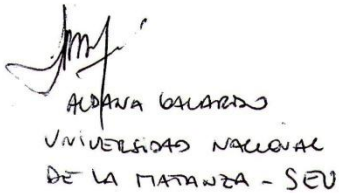 ALDANA GALARDO
UNIVERSIDAD NACIONAL
DE LA MATANZA - SEU